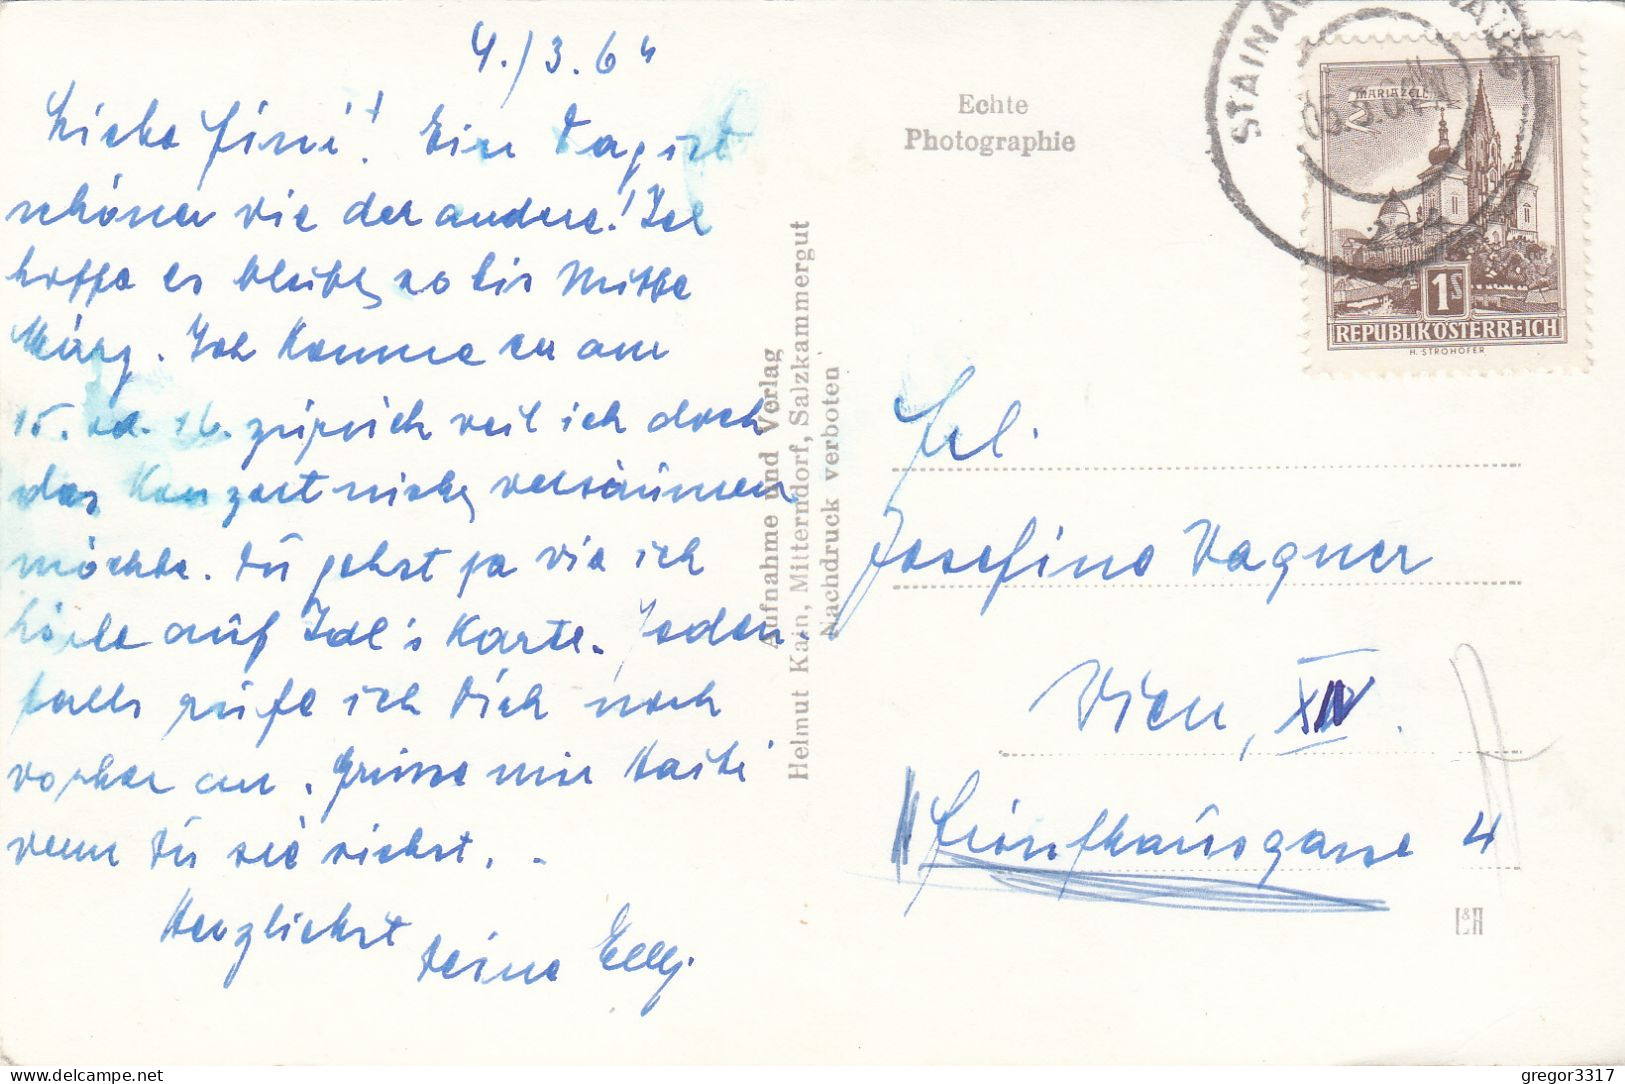 4./3.64
Liebe Fini! Ein Tag ist
schöner wie der andere! Ich
hoffe es bleibt so bis Mitte
März. Ich komme so am
15. od. 16. zurück weil ich doch
das Konzert nicht versäumen
möchte. Du gehst ja wie ich
hörte auf Idl's Karte. Jeden-
falls rufe ich Dich noch
vorher an. Grüsse mir
wenn Du sie siehst. -
Herzlichst
Deine Elly.
Echte
Photographie
Aufnahme und Verlag
Helmut Kain, Mitterndorf, Salzkammergut
Nachdruck verboten
STAINACH
05.3.64
MARIAZELL
1S
REPUBLIK ÖSTERREICH
H. STROHOFER
Frl.
Josefine Wagner
Wien, XIV.
Fünfhausgasse 4
L&H
gregor3317
delcampe.net